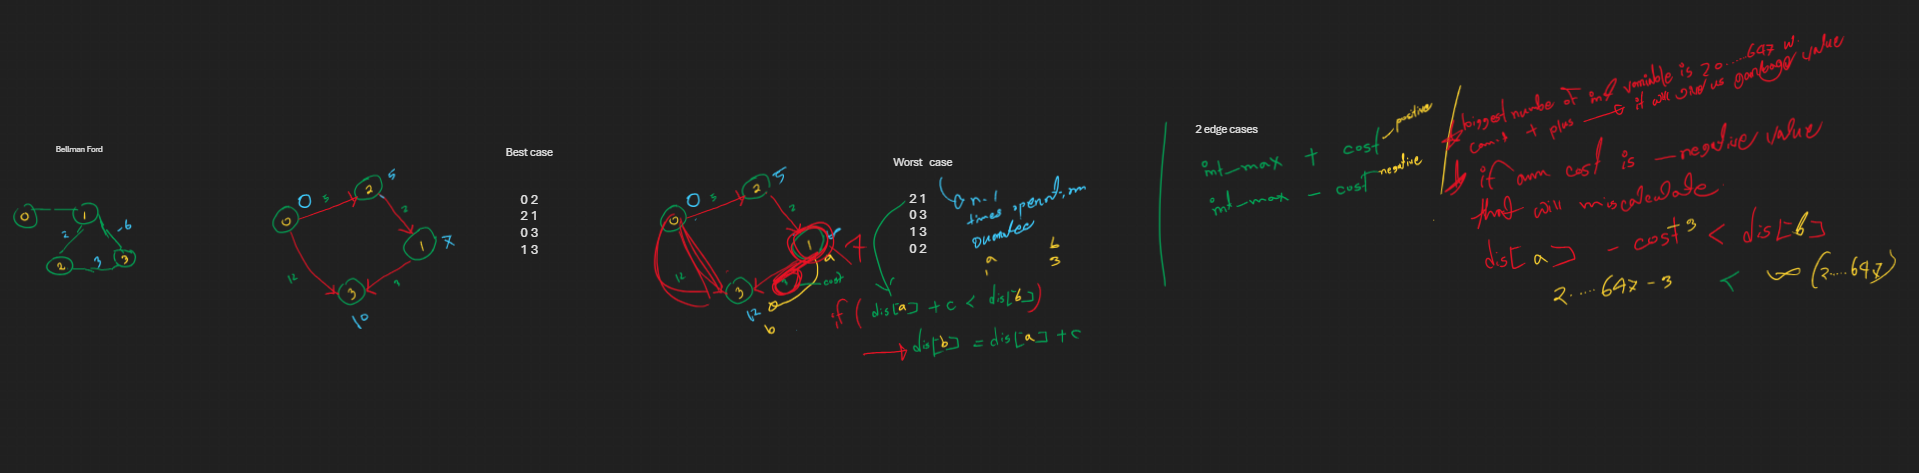 Bellman Ford
0
1
-6
2
2
3
3
0
0
5
2
5
2
1
7
12
3
3
10
Best case
0 2
2 1
0 3
1 3
0
0
5
2
5
2
1
7
a
12
3
cost
12
b
Worst case
2 1
0 3
1 3
0 2
n-1
times
a
b
1
3
if ( dis[a] + c < dis[b] )
dis[b] = dis[a] + c
2 edge cases
int_max + cost positive
int_max - cost negative
biggest number of int variable is 20.....647 w.
can't + plus it will give us garbage value
if any cost is - negative value
that will miscalculate
dis[a] - cost +3 < dis[b]
2.....647 - 3 < ∞ (2.....647)